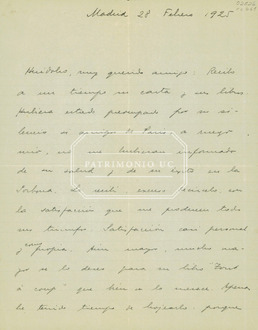 Madrid 28 Febrero 1925
Huidobro, muy querido amigo: Recibo
a un tiempo su carta y su libro
Hubiera estado preocupado por su si-
lencio si amigos de Paris, a mayor
no me hubieran informado
de su salud y de su éxito en la
Sorbona. Le
la satisfacción que me producen todos
sus triunfos. Satisfacción casi personal
y propia. Aun mayor, mucho mayor
PATRIMONIO UC
se lo deseo para su libro "Tout
à coup" que bien se lo merece. Apenas
he tenido tiempo de hojearlo, porque